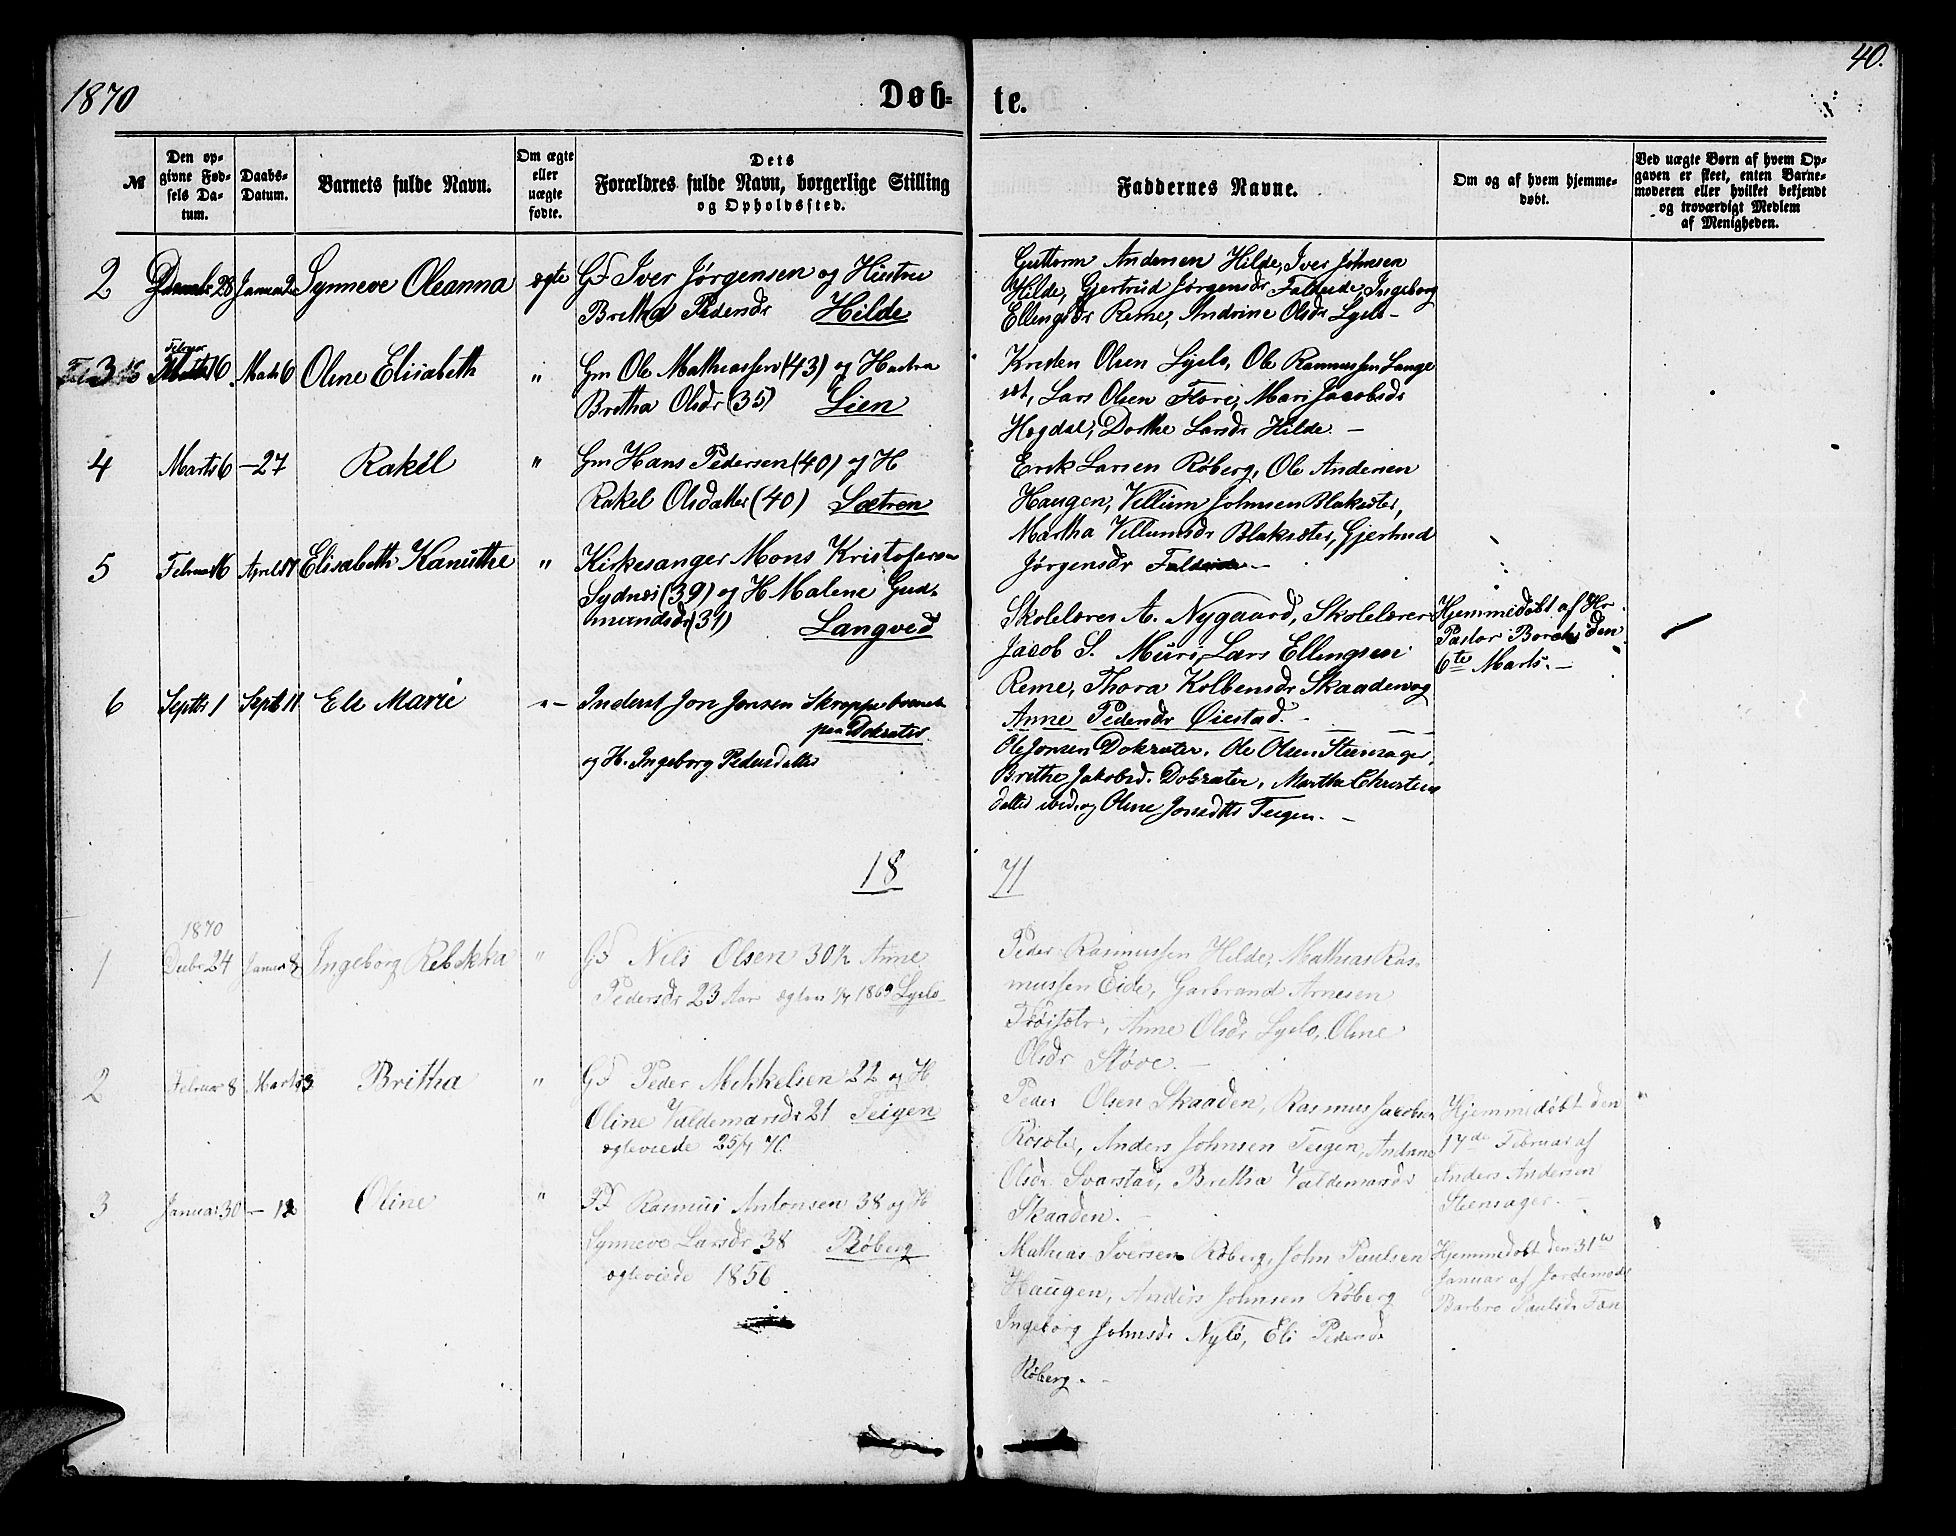 1870
Døb-
te.
40.
№
Den opgivne Fødsels Datum.
Daabs-Datum.
Barnets fulde Navn.
Om ægte eller uægte fødte.
Dets
Forældres fulde Navn, borgerlige Stilling
og Opholdssted.
Faddernes Navne.
Om og af hvem hjemmedøbt.
Ved uægte Børn af hvem Opgaven er skeet, enten Barnemoderen eller hvilket bekjendt og troværdigt Medlem af Menigheden.
2 28 Synneve Oleanna ægte GF Iver Jørgensen og Hustru
Britha Pedersdr Hilde
Guttorm Andersen Hilde, Iver Johnsen
Hilde, Gjertrud Jørgensdr Faldeide, Ingeborg
Ellingsdr Reme, Andrine Olsdr Lyslo-
3 Februar 16 Marts 6 Oline Elisabeth " Gm Ole Mathiassen (43) og Hustru
Britha Olsdr (35) Lien
Kristen Olsen Lyslo, Ole Rasmussen Lange
set, Lars Olsen Flore, Mari Jacobsdr
Hogdal, Dorthe Larsdr Hilde. -
4 Marts 6 -27 Rakel " Gm Hans Pedersen (40) og H
Rakel Olsdatter (40) Sætren
Erik Larsen Røberg, Ole Andersen
Haugen, Villum Johnsen Blakseter,
Martha Villumsdr Blakseter, Gjertrud
Jørgensdr Faldeide. -
5 Februar 16 April 17 Elisabeth Kanuthe " Kirkesanger Mons Kristofersen
Sydnes (39) og H Malene Gud-
mundsdr (31) Langved
Skolelærer A. Nygaard, Skolelærer
Jacob S. Muri, Lars Ellingsen
Reme, Thora Kolbensdr Skaaden og
Anne Pedersdr Øiestad. -
Hjemmedøbt af Hr.
Pastor Borch den
6te Marts. -
6 Septbr 1 Septb 11 Eli Marie -"- Inderst Jon Jonsen Skroppe
paa Dokseter
og H. Ingeborg Pedersdatter
Ole Jonsen Dokseter, Ole Olsen Steensager,
Brithe Jakobsd. Dokseter, Martha Christens
datter ibid. og Oline Jonsdtr Teigen. -
18
71
1 1870 Decbr 24 Januar 8 Ingeborg Rebekka " GF Nils Olsen 30 1/2 Anne
Pedersdr 23 Aar 1869 Lyslo-
Peder Rasmussen Hilde, Mathias Ras-
mussen Eide, Garbrand Arnesen
Anne Olsdr Lyslo, Oline
Olsdr Støve. -
2 Februar 8 Marts 3 Britha " GF Peder Mikkelsen 22 og H
Oline Valdemarsdr 21 Teigen
ægteviede 25/4 70.
Peder Olsen Skaaden, Rasmus Jacobsen
Anders Johnsen Teigen, Andrine
Olsdr Svarstad, Britha Valdemarsdr
Skaaden. -
Hjemmedøbt den
17de Februar af
Anders Andersen
Steensager. -
3 Januar 30 - 12 Oline " Rasmus Antonsen 38 og H
Synneve Larsdr 38 Røberg
ægteviede 1856
Mathias Iversen Røberg, John Paulsen
Haugen, Anders Johnsen Røberg
Ingeborg Johnsdr Nylø, Eli Pedersdr
Røberg. -
Hjemmedøbt den 31te
Januar af Jordemoder
Barbro Paulsdr